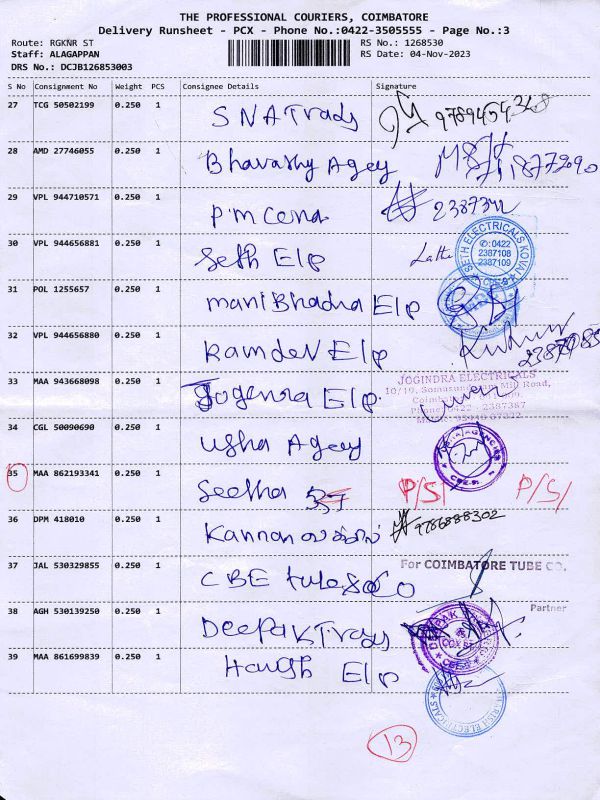 THE PROFESSIONAL COURIERS, COIMBATORE
Delivery Runsheet - PCX - Phone No.:0422-3505555 - Page No.:3
Route: RGKNR ST
RS No.: 1268530
Staff: ALAGAPPAN
RS Date: 04-Nov-2023
DRS No.: DCJB126853003
S No Consignment No Weight PCS Consignee Details Signature
27 TCG 50502199 0.250 1 SNA Trads
28 AMD 27746055 0.250 1 Bhavashy Agey
29 VPL 944710571 0.250 1 P.M Cena
30 VPL 944656881 0.250 1 Seth Elp
SETH ELECTRICALS KOVAI
✆:0422
2387108
2387109
31 POL 1255657 0.250 1 mani Bhadra Elp
32 VPL 944656880 0.250 1 Ramdev Elp
33 MAA 943668098 0.250 1 Jogenra Elp.
JOGINDRA ELECTRICALS
10/19, Somasundaram Mill Road,
34 CGL 50090690 0.250 1 Usha Agey
35 MAA 862193341 0.250 1 Seetha P/S/ P/S/
36 DPM 418010 0.250 1 Kannan 9786888302
37 JAL 530329855 0.250 1 CBE tubes Co
For COIMBATORE TUBE CO.
Partner
38 AGH 530139250 0.250 1 Deepak Trads
39 MAA 861699839 0.250 1 Harish Elp
13